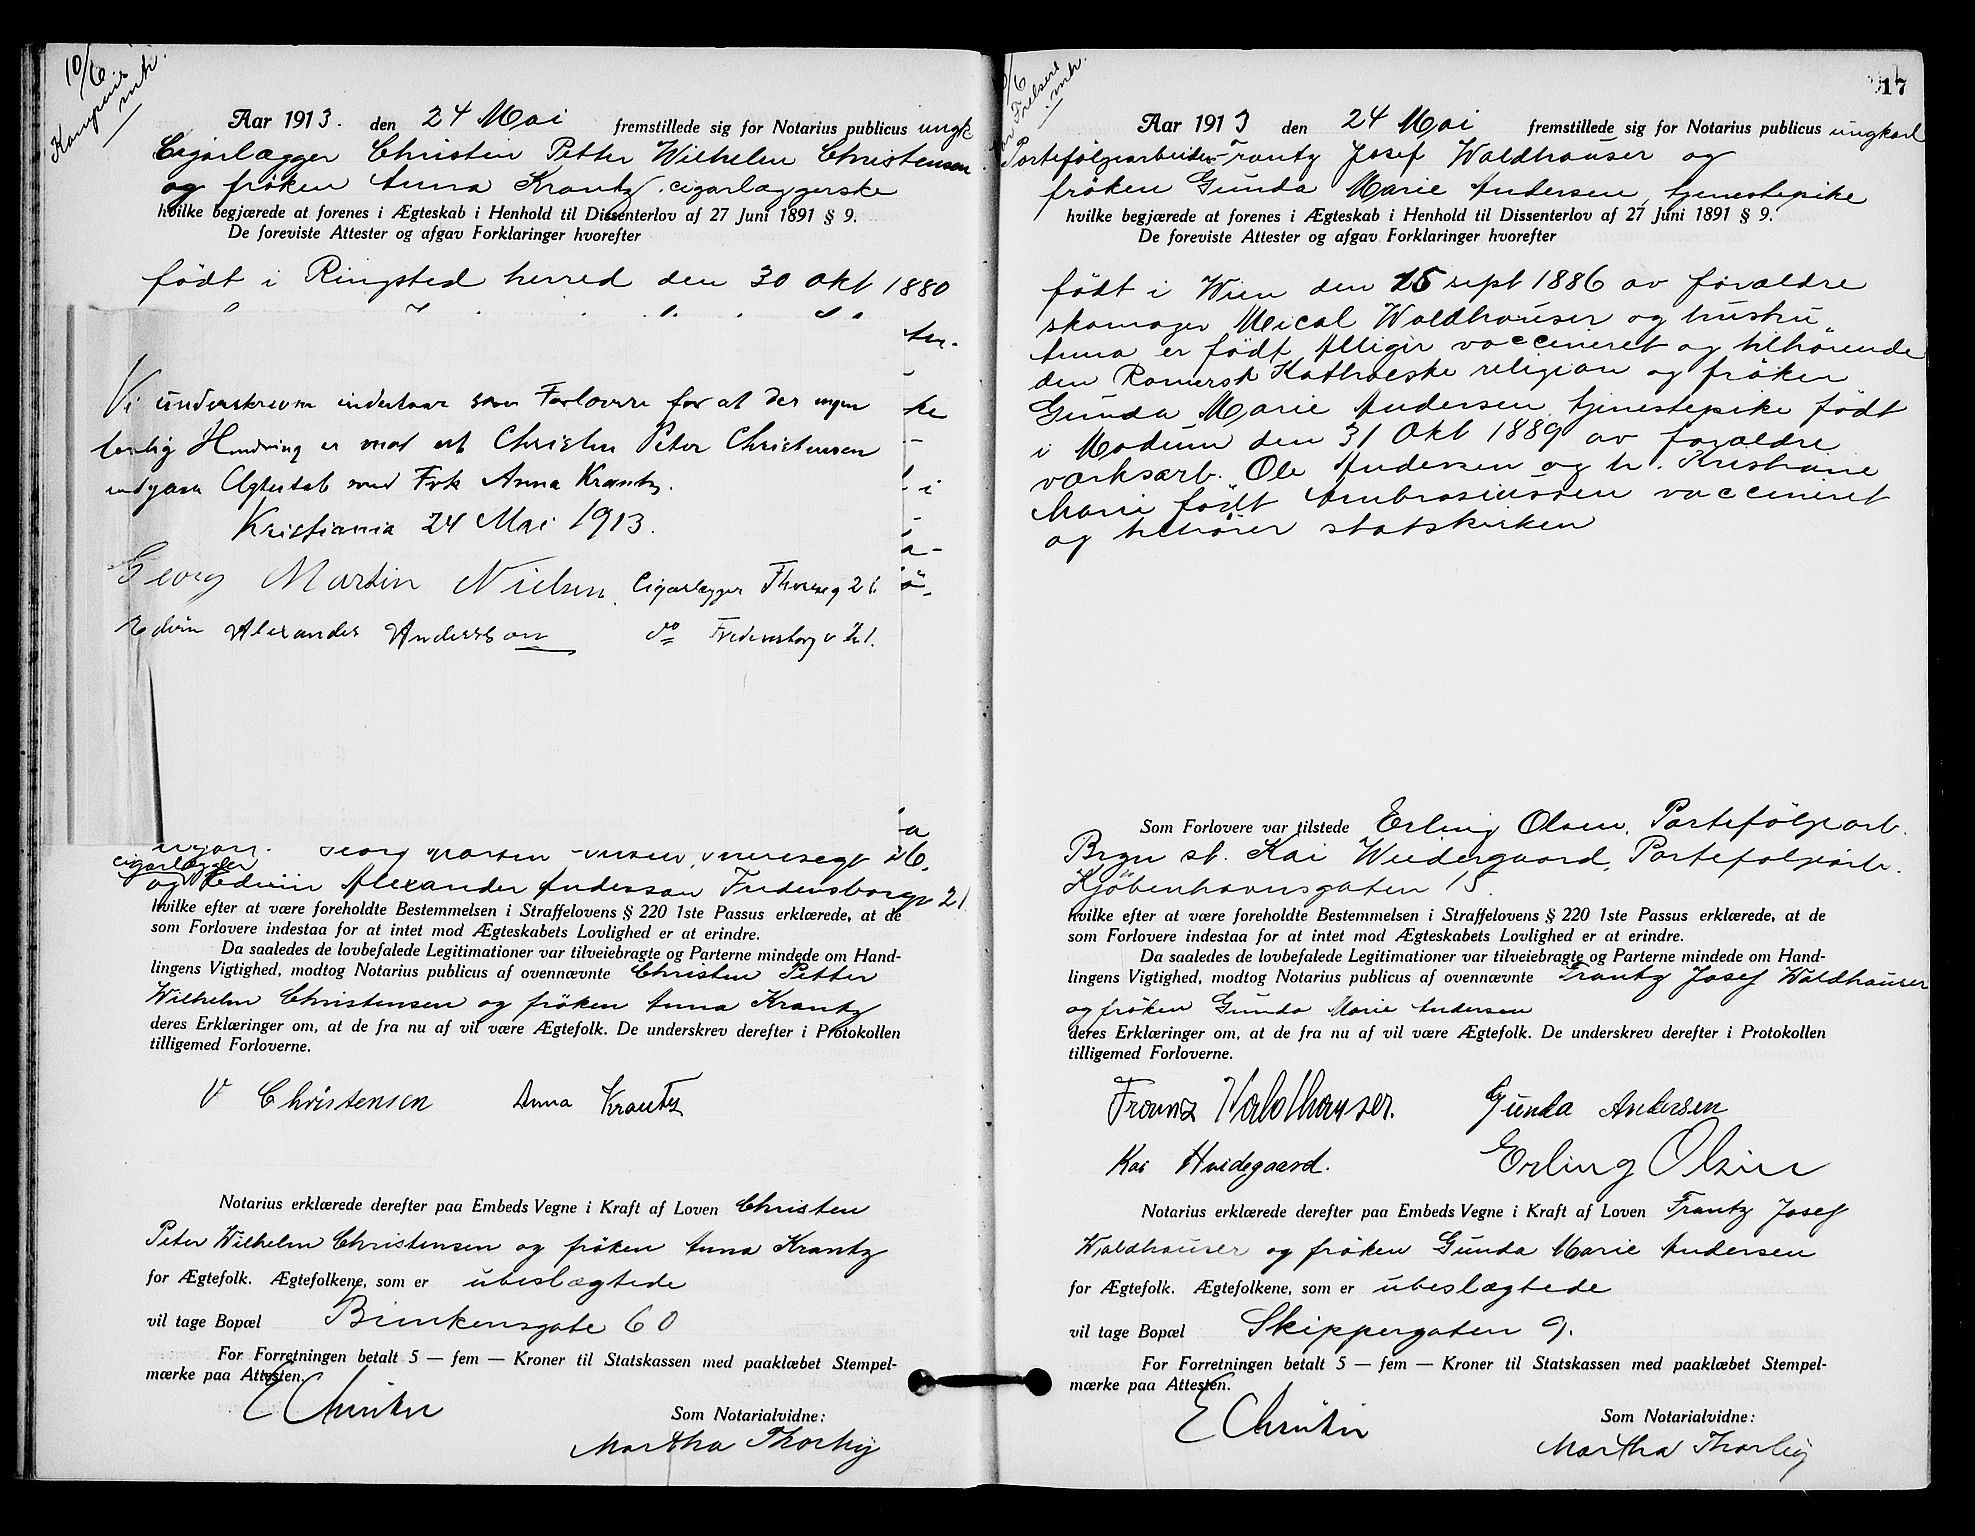 10/6
Aar 1913. den 24 Mai fremstillede sig for Notarius publicus ungk
Cigarlægger Christen Petter Wilhelm Christensen
og frøken Anna Krantz, cigarlæggerske
hvilke begjærede at forenes i Ægteskab i Henhold til Dissenterlov af 27 Juni 1891 § 9.
De foreviste Attester og afgav Forklaringer hvorefter
født i Ringsted herred den 30 okt 1880
Vi underskrevne indestaar som Forlovere for at der ingen
lovlig Hindring er mod at Christen Peter Christensen
indgaar Ægteskab med Frk Anna Krantz.
Kristiania 24 Mai 1913.
Georg Martin Nielsen, Cigarlægger
Edvin Alexander Andersson do Fredensborg v 21.
cigarlægger
og Edvin Alexander Andersson Fredensborgv 21
hvilke efter at være foreholdte Bestemmelsen i Straffelovens § 220 1ste Passus erklærede, at de
som Forlovere indestaa for at intet mod Ægteskabets Lovlighed er at erindre.
Da saaledes de lovbefalede Legitimationer var tilveiebragte og Parterne mindede om Hand-
lingens Vigtighed, modtog Notarius publicus af ovennævnte Christen Petter
Wilhelm Christensen og frøken Anna Krantz
deres Erklæringer om, at de fra nu af vil være Ægtefolk. De underskrev derefter i Protokollen
tilligemed Forloverne.
V Christensen Anna Krantz
Notarius erklærede derefter paa Embeds Vegne i Kraft af Loven Christen
Peter Wilhelm Christensen og frøken Anna Krantz
for Ægtefolk. Ægtefolkene, som er ubeslægtede
vil tage Bopæl Brinkensgate 60
For Forretningen betalt 5 — fem — Kroner til Statskassen med paaklæbet Stempel-
mærke paa Attesten.
Som Notarialvidne:
Martha
17
Aar 1913 den 24 Mai fremstillede sig for Notarius publicus ungkarl
Portefølgearbeider Frantz Josef Waldhauser og
frøken Gunda Marie Andersen, tjenestepike
hvilke begjærede at forenes i Ægteskab i Henhold til Dissenterlov af 27 Juni 1891 § 9.
De foreviste Attester og afgav Forklaringer hvorefter
født i Wien den 15 sept 1886 av forældre
skomager Mical Waldhauser og hustru
Anna er født vaccineret og tilhørende
den Romersk Katholske religion og frøken
Gunda Marie Andersen, tjenestepike født
i Modum den 31 Okt 1889 av forældre
verksarb. Ole Andersen og h. Kristiane
Marie født Ambrosiusden vaccineret
og tilhører statskirken
Som Forlovere var tilstede Erling Olsen, Portefølgearb.
Kai Portefølgearb.
Kjøbenhavnsgaten 15.
hvilke efter at være foreholdte Bestemmelsen i Straffelovens § 220 1ste Passus erklærede, at de
som Forlovere indestaa for at intet mod Ægteskabets Lovlighed er at erindre.
Da saaledes de lovbefalede Legitimationer var tilveiebragte og Parterne mindede om Hand-
lingens Vigtighed, modtog Notarius publicus af ovennævnte Frantz Josef Waldhauser
og frøken Gunda Marie Andersen
deres Erklæringer om, at de fra nu af vil være Ægtefolk. De underskrev derefter i Protokollen
tilligemed Forloverne.
Franz Waldhauser. Gunda Andersen
Kai Hvidegaard. Erling Olsen
Notarius erklærede derefter paa Embeds Vegne i Kraft af Loven Frantz Josef
Waldhauser og frøken Gunda Marie Andersen
for Ægtefolk. Ægtefolkene, som er ubeslægtede
vil tage Bopæl Skippergaten 9.
For Forretningen betalt 5 — fem — Kroner til Statskassen med paaklæbet Stempel-
mærke paa Attesten.
Som Notarialvidne:
Martha